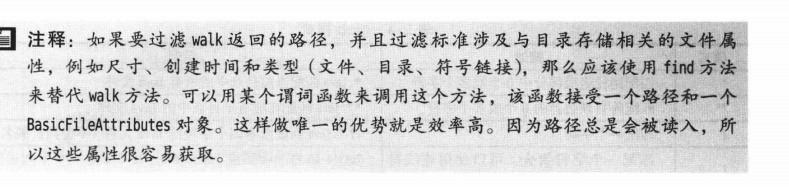 注释：如果要过滤 walk 返回的路径，并且过滤标准涉及与目录存储相关的文件属
性，例如尺寸、创建时间和类型（文件、目录、符号链接），那么应该使用 find 方法
来替代 walk 方法。可以用某个谓词函数来调用这个方法，该函数接受一个路径和一个
BasicFileAttributes 对象。这样做唯一的优势就是效率高。因为路径总是会被读入，所
以这些属性很容易获取。